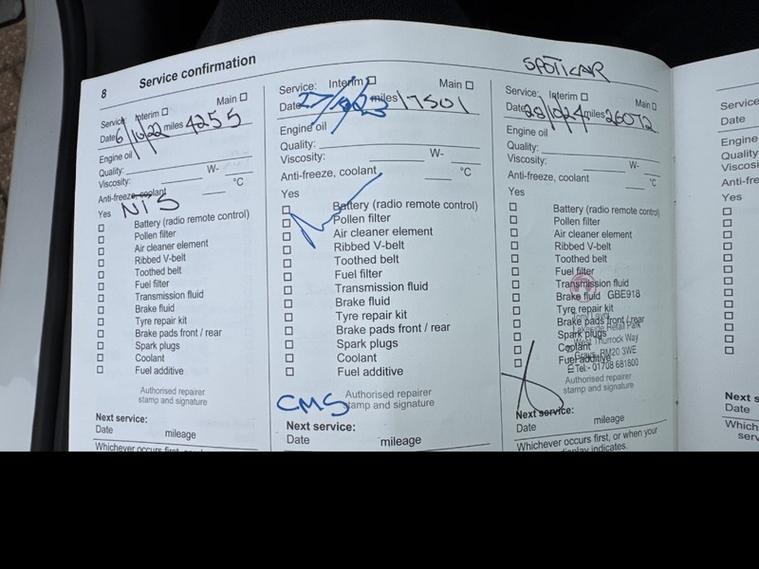 8 Service confirmation
Service: Interim Main
Date 6/10/22 miles 4255
Engine oil
Quality:
Viscosity: W-
Anti-freeze, coolant °C
Yes NTS
Battery (radio remote control)
Pollen filter
Air cleaner element
Ribbed V-belt
Toothed belt
Fuel filter
Transmission fluid
Brake fluid
Tyre repair kit
Brake pads front / rear
Spark plugs
Coolant
Fuel additive
Authorised repairer
stamp and signature
Next service:
Date mileage
Whichever occurs first,
Service: Interim Main
Date 27/10/23 miles 17501
Engine oil
Quality:
Viscosity: W-
Anti-freeze, coolant °C
Yes
Battery (radio remote control)
Pollen filter
Air cleaner element
Ribbed V-belt
Toothed belt
Fuel filter
Transmission fluid
Brake fluid
Tyre repair kit
Brake pads front / rear
Spark plugs
Coolant
Fuel additive
CMS Authorised repairer
stamp and signature
Next service:
Date mileage
SPOTICAR
Service: Interim Main
Date 28/10/24 miles 26072
Engine oil
Quality:
Viscosity: W-
Anti-freeze, coolant °C
Yes
Battery (radio remote control)
Pollen filter
Air cleaner element
Ribbed V-belt
Toothed belt
Fuel filter
Transmission fluid
Brake fluid GBE918
Tyre repair kit
Brake pads front / rear
Lakeside Retail Park
Spark plugs
West Thurrock Way
Coolant
Grays, RM20 3WE
Fuel additive
Tel:- 01708 681800
Authorised repairer
stamp and signature
Next service:
Date mileage
Whichever occurs first, or when your
display indicates.
Service
Date
Engine
Quality
Anti-fre
Yes
Next s
Date
Which
serv